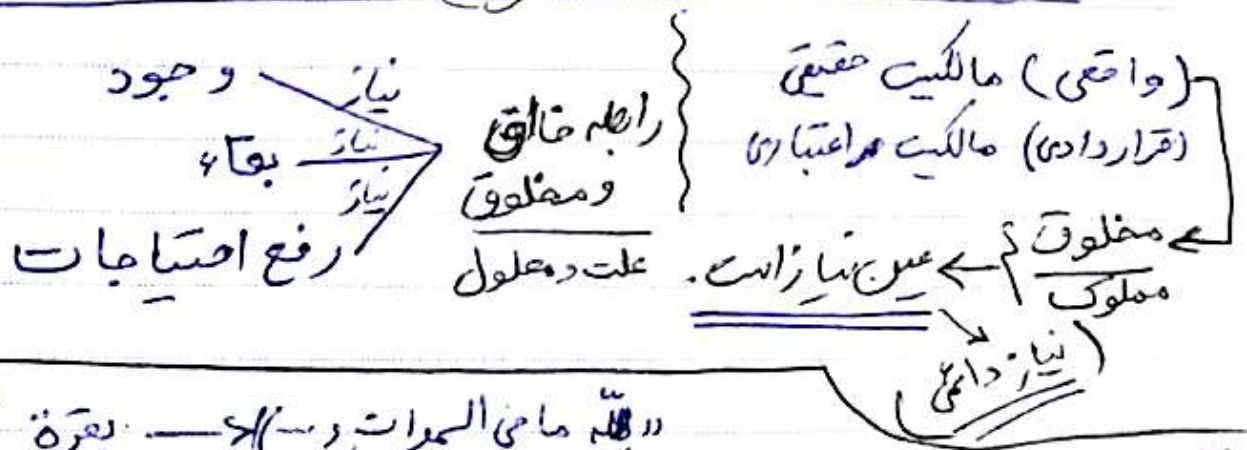 (واقعی) مالکیت حقیقی
(قراردادی) مالکیت اعتباری
مخلوق
مملوک
عین نیاز است.
(نیاز دائمی)
رابطه خالق
و مخلوق
علت و معلول
نیاز وجود
نیاز بقاء
نیاز رفع احتیاجات
«لله ما فی السموات و ...» بقرة